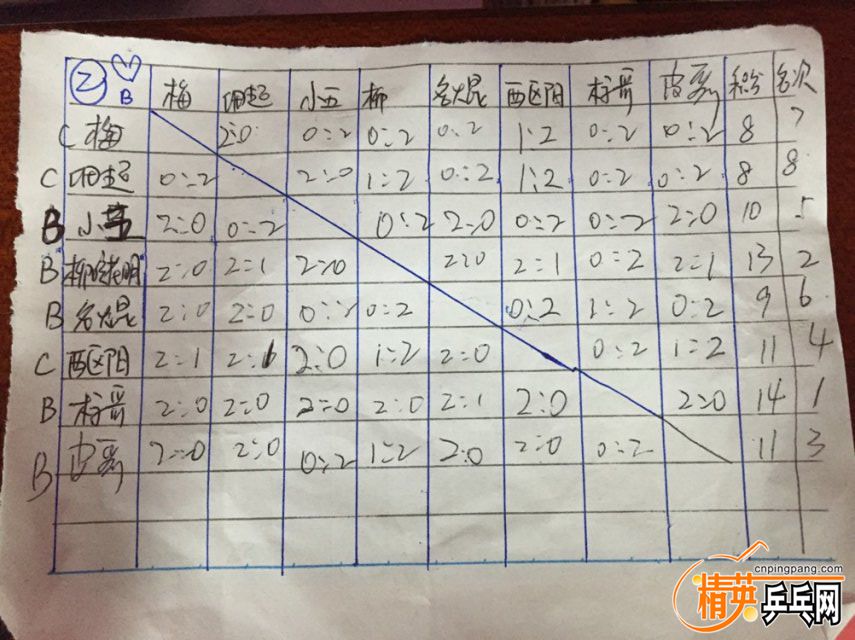 ② B 梅 小五 柳 名大昆 西区阳 标哥 皮哥 积分 名次
C 梅 2:0 0:2 0:2 0:2 1:2 0:2 0:2 8 7
C 0:2 2:0 1:2 0:2 1:2 0:2 0:2 8 8
B 小五 2:0 0:2 0:2 2:0 0:2 0:2 2:0 10 5
B 2:0 2:1 2:0 2:0 2:1 0:2 2:1 13 2
B 名大昆 2:0 2:0 0:2 0:2 0:2 1:2 0:2 9 6
C 西区阳 2:1 2:1 2:0 1:2 2:0 0:2 1:2 11 4
B 标哥 2:0 2:0 2:0 2:0 2:1 2:0 2:0 14 1
B 皮哥 2:0 2:0 0:2 1:2 2:0 2:0 0:2 11 3
cnpingpang.com
精英乒乓网